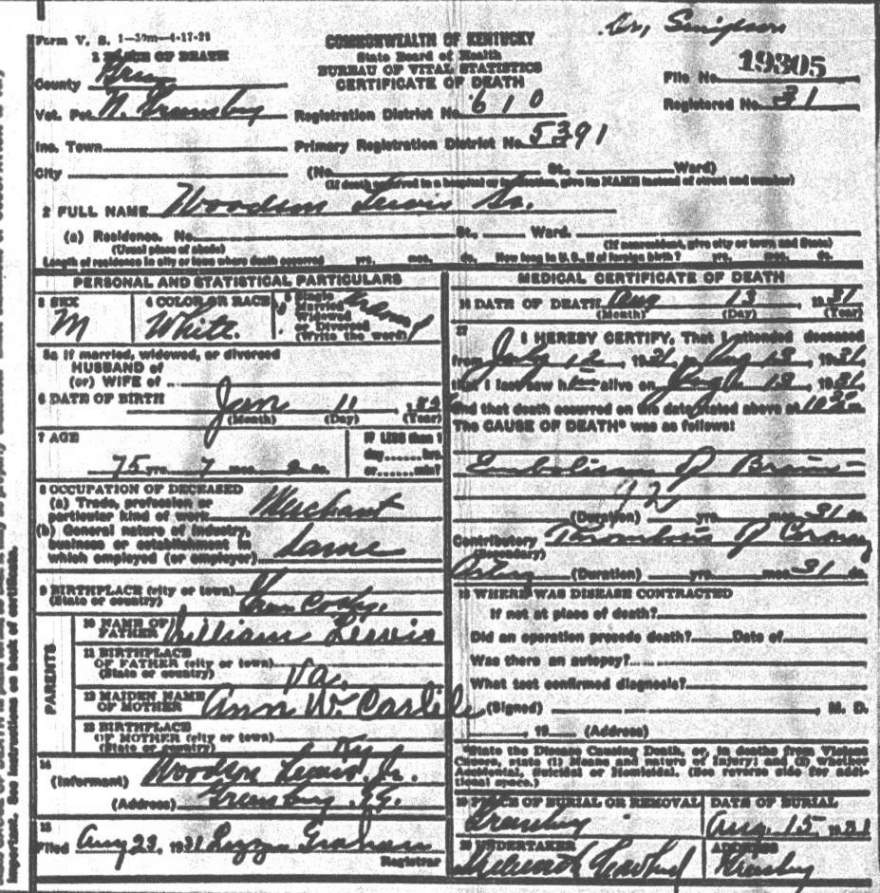 Dr. Simpson
Form V. S. 1-30m-4-17-28
COMMONWEALTH OF KENTUCKY
State Board of Health
BUREAU OF VITAL STATISTICS
CERTIFICATE OF DEATH
File No. 19305
Registered No. 31
1 PLACE OF DEATH
County Green
Vot. Pct. N. Greensburg
Registration District No. 610
Inc. Town
Primary Registration District No. 5391
City (No. St., Ward)
(If death occurred in a hospital or institution, give its NAME instead of street and number)
2 FULL NAME Woodson Lewis Sr.
(a) Residence. No. St., Ward.
(Usual place of abode) (If nonresident, give city or town and State)
Length of residence in city or town where death occurred yrs. mos. ds. How long in U. S., if of foreign birth? yrs. mos. ds.
PERSONAL AND STATISTICAL PARTICULARS
3 SEX
M
4 COLOR OR RACE
White
5 Single
Married
Widowed
or Divorced
(Write the word)
5a If married, widowed, or divorced
HUSBAND of
(or) WIFE of
6 DATE OF BIRTH
Jan 11
(Month) (Day) (Year)
7 AGE
75 yrs. 7 mos. 2 ds.
IF LESS than 1
day......hrs.
or......min?
8 OCCUPATION OF DECEASED
(a) Trade, profession or
particular kind of work Merchant
(b) General nature of industry,
business or establishment in
which employed (or employer) Same
9 BIRTHPLACE (city or town)
(State or country) Green Co Ky.
PARENTS
10 NAME OF
FATHER William Lewis
11 BIRTHPLACE
OF FATHER (city or town)
(State or country) Va.
12 MAIDEN NAME
OF MOTHER Ann W Carlile
13 BIRTHPLACE
OF MOTHER (city or town)
(State or country) Ky
14
(Informant) Woodson Lewis Jr.
(Address) Greensburg Ky.
15
Filed Aug 23, 1931 Graham
Registrar
MEDICAL CERTIFICATE OF DEATH
16 DATE OF DEATH Aug 13 1931
(Month) (Day) (Year)
17
I HEREBY CERTIFY, That I attended deceased
from July 12, 1931 to Aug 13, 1931
that I last saw him alive on Aug 13, 1931
and that death occurred on the date stated above at
The CAUSE OF DEATH* was as follows:
Embolism of Brain
92
(Duration) yrs. mos. 31 ds.
Contributory Thrombosis of Coronary
(Secondary)
Artery (Duration) yrs. mos. 31 ds.
18 WHERE WAS DISEASE CONTRACTED
If not at place of death?
Did an operation precede death? Date of
Was there an autopsy?
What test confirmed diagnosis?
(Signed) , M. D.
, 19 (Address)
*State the Disease Causing Death, or, in deaths from Violent
Causes, state (1) Means and nature of Injury; and (2) Whether
Accidental, Suicidal or Homicidal. (See reverse side for addi-
tional space.)
19 PLACE OF BURIAL OR REMOVAL
Greensburg
DATE OF BURIAL
Aug. 15, 1931
20 UNDERTAKER
ADDRESS
Greensburg
important. See instructions on back of certificate.